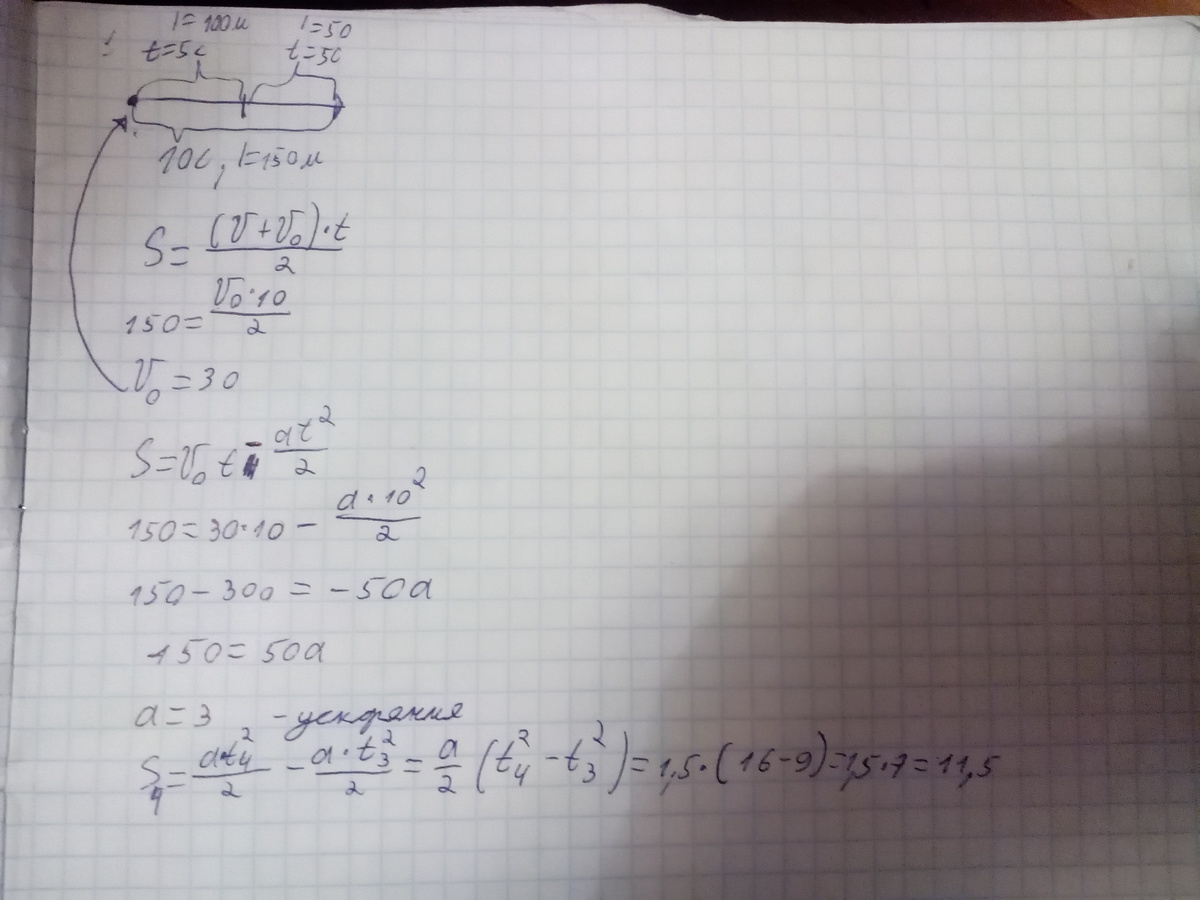 1 l=100м l=50
t=5с t=5с
10с, l=150м
S = (V+V₀)·t / 2
150 = V₀·10 / 2
V₀ = 30
S = V₀t - at² / 2
150 = 30·10 - a·10² / 2
150 - 300 = -50a
150 = 50a
a = 3 - ускорения
S₄ = a·t₄² / 2 - a·t₃² / 2 = a/2 (t₄² - t₃²) = 1,5·(16-9) = 1,5·7 = 11,5